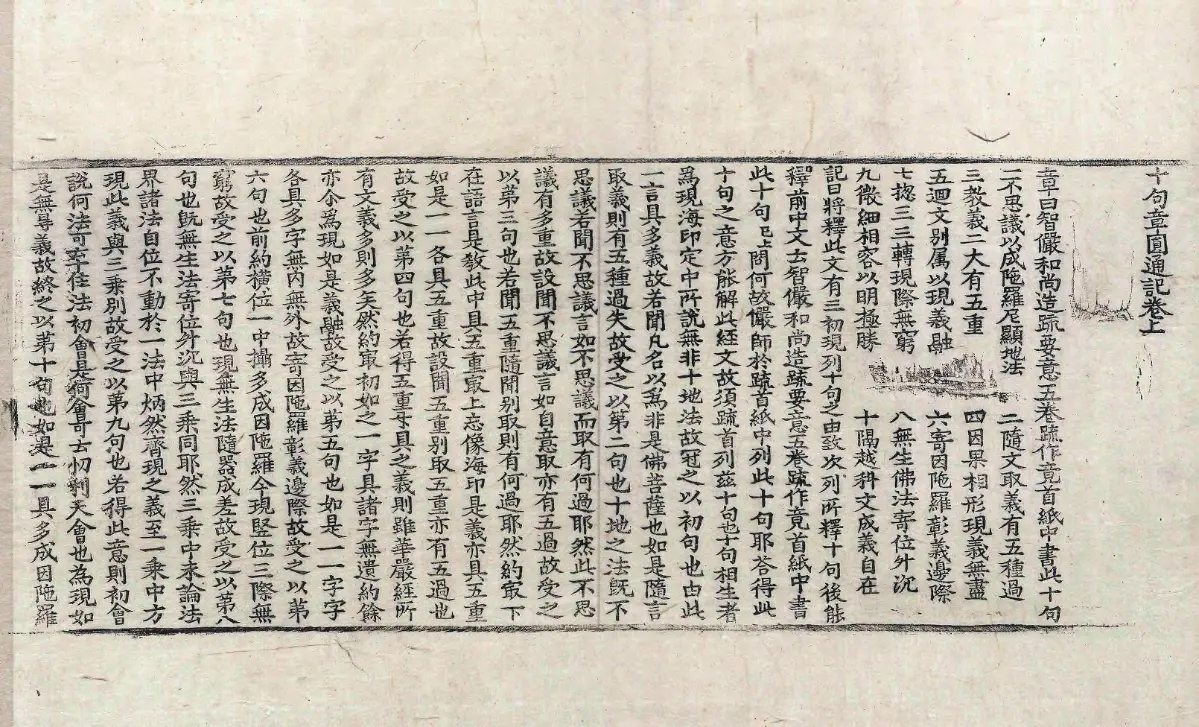 十句章圓通記卷上
章曰智儼和尚造䟽要意五卷䟽作竟首紙中書此十句
一不思議以成陁羅尼顯地法 二隨文取義有五種過
三教義二大有五重 四因果相形現義無盡
五迴文別属以現義融 六寄因陁羅彰義邊際
七揔三三轉現際無窮 八無生佛法寄位升沉
九微細相容以明極勝 十隔越科文成義自在
記曰將釋此文有三初現列十句之由致次列所釋十句後能
釋前中文士智儼和尚造䟽要意五卷䟽作竟首紙中書
此十句已上問何故儼師於䟽首紙中列此十句耶答得此
十句之意方能解此經文故須䟽首列兹十句也十句相生者
為現海印定中所說無非十地法故冠之以初句也由此
一言具多義故若聞凡名以為非是佛菩薩也如是隨言
取義則有五種過失故受之以第二句也十地之法旣不
思議若聞不思議言如不思議而取有何過耶然此不思
議有多重故設聞不思議言如自意取亦有五過故受之
以第三句也若聞五重隨聞別取則有何過耶然約取下
在語言是教此中具五重取上忘像海印是義亦具五重
如是一一各具五重故設聞五重別取五重亦有五過也
故受之以第四句也若得五重牙具之義則雖華嚴經所
有文義多則多矣然約取初如之一字具諸字無遺約餘
亦介為現如是義融故受之以第五句也如是一一字字
各具多字無內無外故寄因陁羅彰義邊際故受之以第
六句也前約橫位一中攝多成因陁羅今現竪位三際無
窮故受之以第七句也現無生法隨器成差故受之以第八
句也旣無生法寄位升沉與三乘同耶然三乘中來論法
界諸法自位不動於一法中炳然齊現之義至一乘中方
現此義與三乘別故受之以第九句也若得此意則初會
說何法可寄住法初會是何會哥士忉利天會也為現如
是無㝵義故終之以第十句也如是一一具多成因陁羅